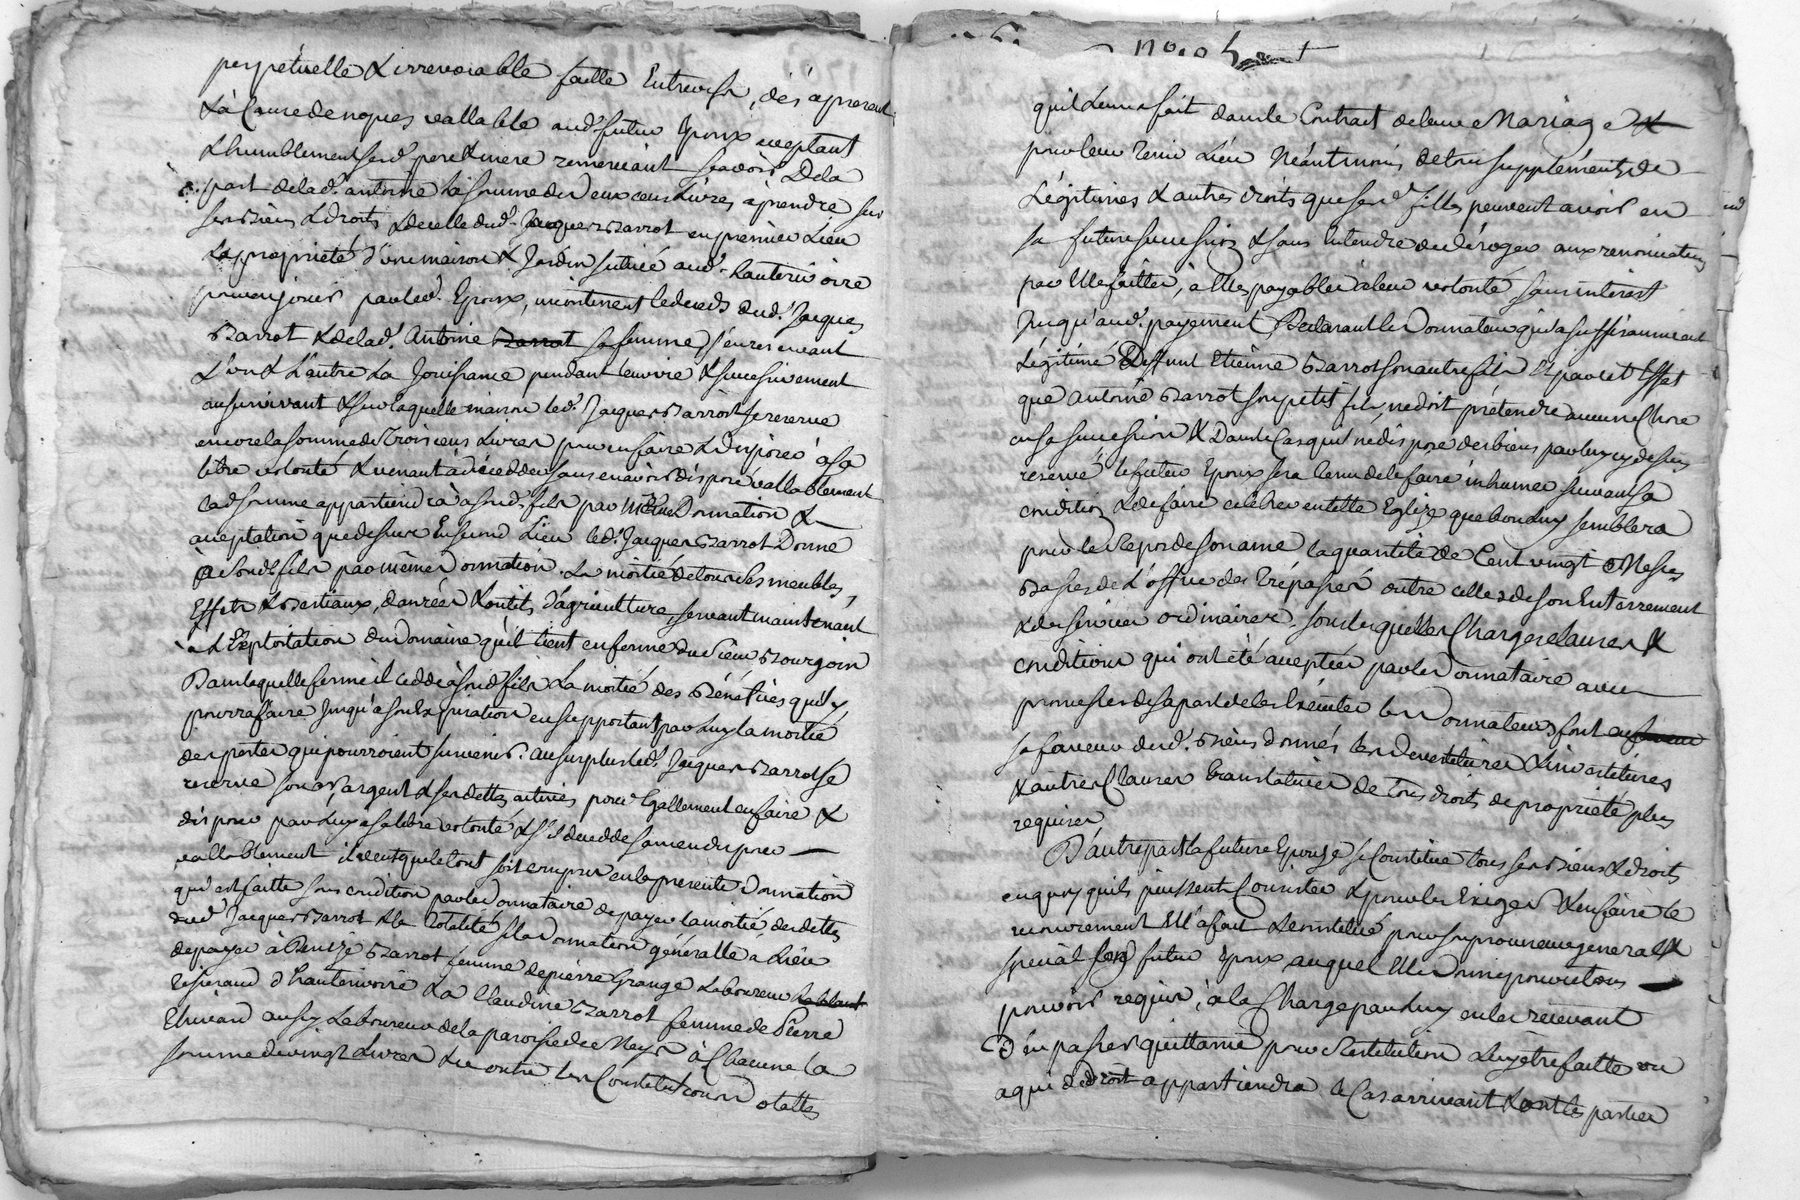 perpetuelle & irrevocable faitte Entrevifs, dés apresent
& à Cause de nopces vallable aud. futur Epoux acceptant
& humblement sesd. pere & mere remerciant sçavoir De la
part de lad. antoine la somme de deux cens Livres à prendre sur
ses Biens & droits & de celle dud. Jacques Barrot en premier Lieu
La proprieté d'une maison & Jardin situés aud. hauterivoire
pour en jouir par led. Epoux, incontinent le deceds dud. Jacques
Barrot & de lad. Antoine Barrot sa femme s'en reservant
L'un & L'autre La Jouissance pendant leur vie & successivement
au survivant & sur laquelle maison led. Jacques Barrot se reserve
encore la somme de Trois cens Livres pour en faire & disposer à sa
libre volonté & venant à décedder sans en avoir disposé vallablement
lad. somme appartiendra à sond. fils par même Donnation &
acceptation que dessus En second Lieu led. Jacques Barrot Donne
à sond. fils par même Donnation. La moitié de tous les meubles,
Effets & Bestiaux, danrées & outils d'agriculture, servant maintenant
à L'Exploitation du Domaine qu'il tient en ferme du Sieur Bourgoin
Dans laquelle ferme il cedde à sond. fils La moitié des Bénéfices qu'il y
pourra faire Jusqu'à son Expiration en supportant par luy la moitié
des pertes qui pourroient survenir. au surplus led. Jacques Barrot se
reserve son or, argent & ses dettes actives pour Egallement en faire &
disposer par luy à sa libre volonté & s'il decedde sans en disposer
vallablement il veut que le tout soit compris en la presente Donnation
qui est faitte sous condition par le Donnataire de payer la moitié des dettes
dud. Jacques Barrot & la totalité si la Donnation généralle a Lieu
de payer à Benoite Barrot femme de pierre Grange Laboureur
d'hauterivoire & à Claudine Barrot femme de Pierre
aussy Laboureur de la paroisse de Neys à Chacune la
somme de vingt Livres & ce outre les Constitutions
qu'il leur a fait dans le Contract de leur Mariage &
pour leur tenir Lieu Néantmoins de tous supplements de
Légitimes & autres droits que sesd. filles peuvent avoir en
sa future succession & sans entendre deroger aux renonciations
par Elle faittes, à Elles payables à leur volonté sans interest
Jusqu'aud. payement, Declarant le Donnateur qu'il a suffisamment
Légitimé Deffunt Etienne Barrot son autre fils Et par cet Effet
que antoine Barrot son petit fils, ne doit prétendre aucune Chose
en sa succession & Dans le Cas qu'il ne dispose des biens par luy cy dessus
reservé le futur Epoux sera tenu de le faire inhumer suivant sa
condition & de faire celebrer en telle Eglize que bon luy semblera
pour le Repos de son ame la quantité de Cent vingt Messes
Basses de L'office des Trépassés outre celles de son Enterrement
& des services ordinaires. sous lesquelles Charges clauses &
conditions qui ont été acceptées par le Donnataire avec
promesses de sa part de les Exécuter les Donnateurs font en
sa faveur dud. Biens donnés les devestitures & investitures
& autres Clauses translatives de tous droits de proprieté plus
requises
D'autre part la future Epouze se Constitue tous ses Biens & droits
en quoy qu'ils puissent Consister & pour les Exiger & en faire le
recouvrement Elle a fait & constitué pour son procureur general &
spécial led. futur Epoux auquel Elle donne pour ce tous
pouvoirs requis, à la Charge par luy en les recevant
D'en passer quittance pour Restitution Luy être faitte ou
a qui de droit appartiendra le Cas arrivant & ont les parties